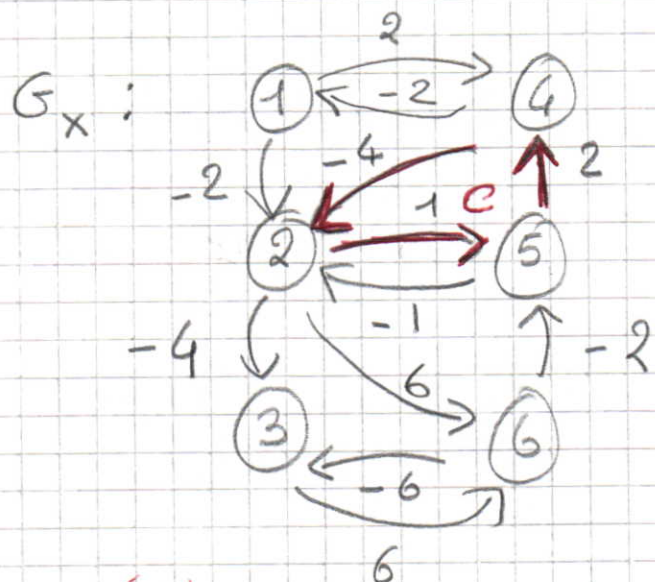 2
G_x : 1 -2 4
-2 -4 2
1 C
2 5
-1
-4 6 -2
3 6
-6
6